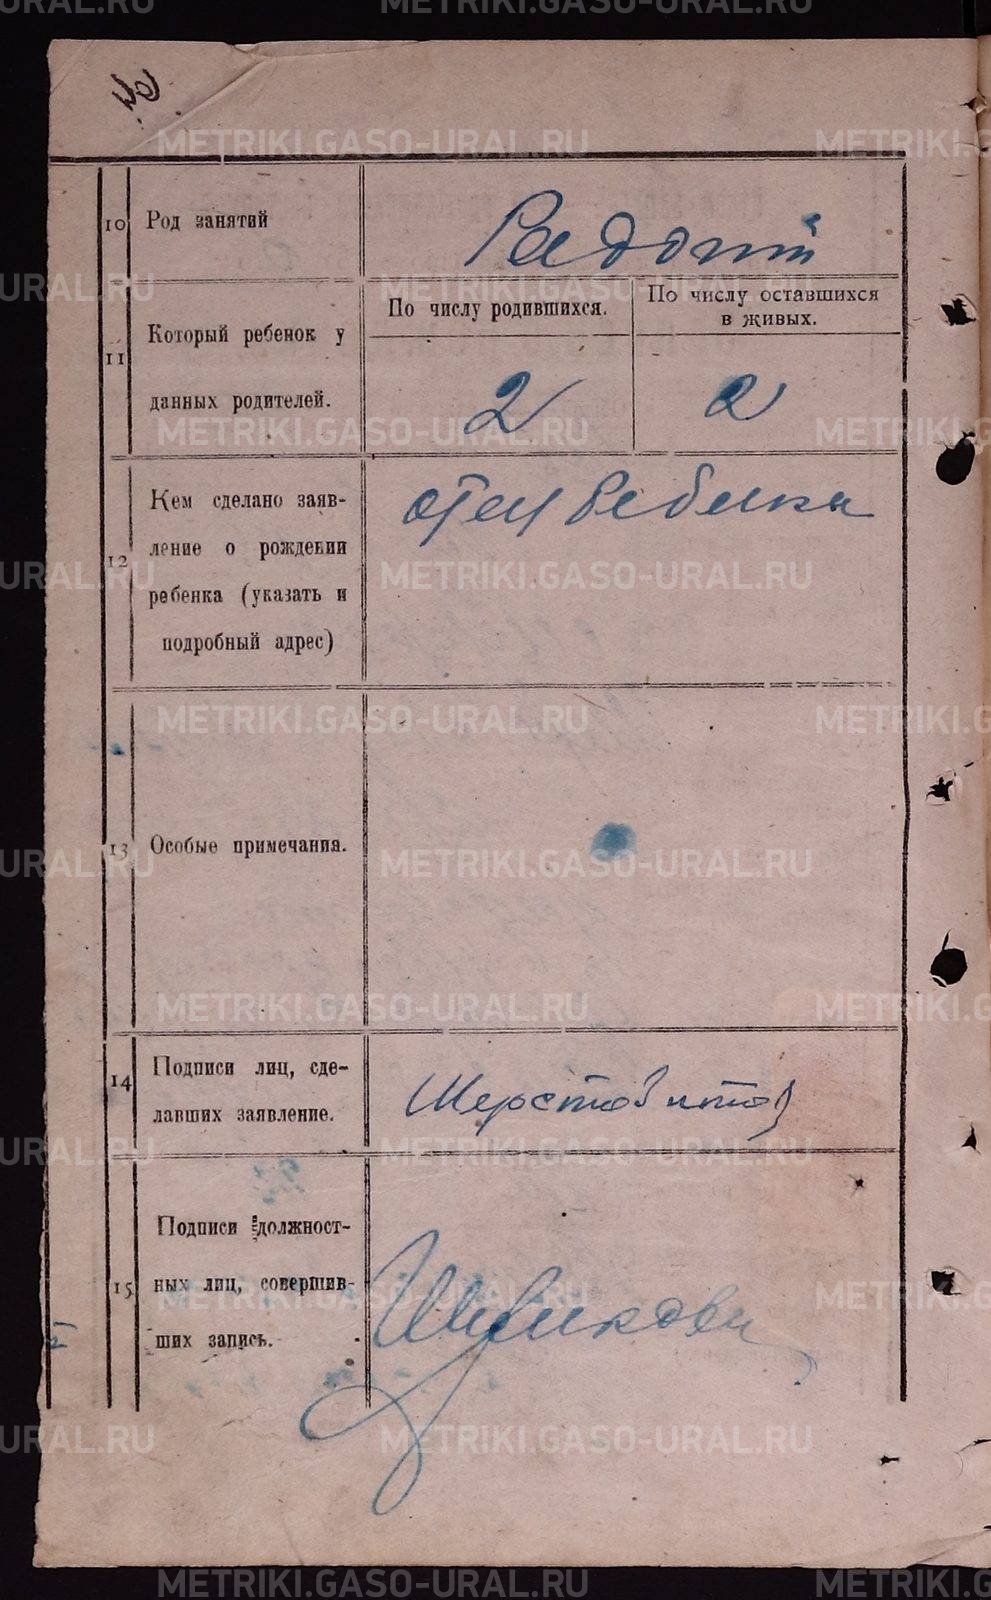 64
METRIKI.GASO-URAL.RU
10 Род занятий
11 Который ребенок у
данных родителей.
По числу родившихся.
По числу оставшихся
в живых.
2
2
12 Кем сделано заяв-
ление о рождении
ребенка (указать и
подробный адрес)
отец ребенка
13 Особые примечания.
14 Подписи лиц, сде-
лавших заявление.
Шерстобитов
15 Подписи должност-
ных лиц, совершив-
ших запись.